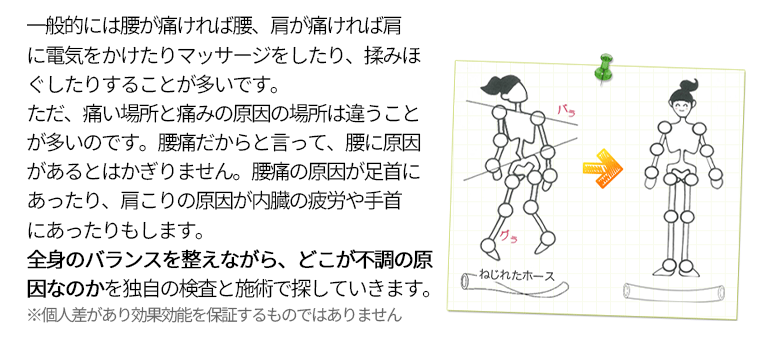 一般的には腰が痛ければ腰、肩が痛ければ肩
に電気をかけたりマッサージをしたり、揉みほ
ぐしたりすることが多いです。
ただ、痛い場所と痛みの原因の場所は違うこと
が多いのです。腰痛だからと言って、腰に原因
があるとはかぎりません。腰痛の原因が足首に
あったり、肩こりの原因が内臓の疲労や手首
にあったりもします。
全身のバランスを整えながら、どこが不調の原
因なのかを独自の検査と施術で探していきます。
※個人差があり効果効能を保証するものではありません
バラ
グラ
ねじれたホース